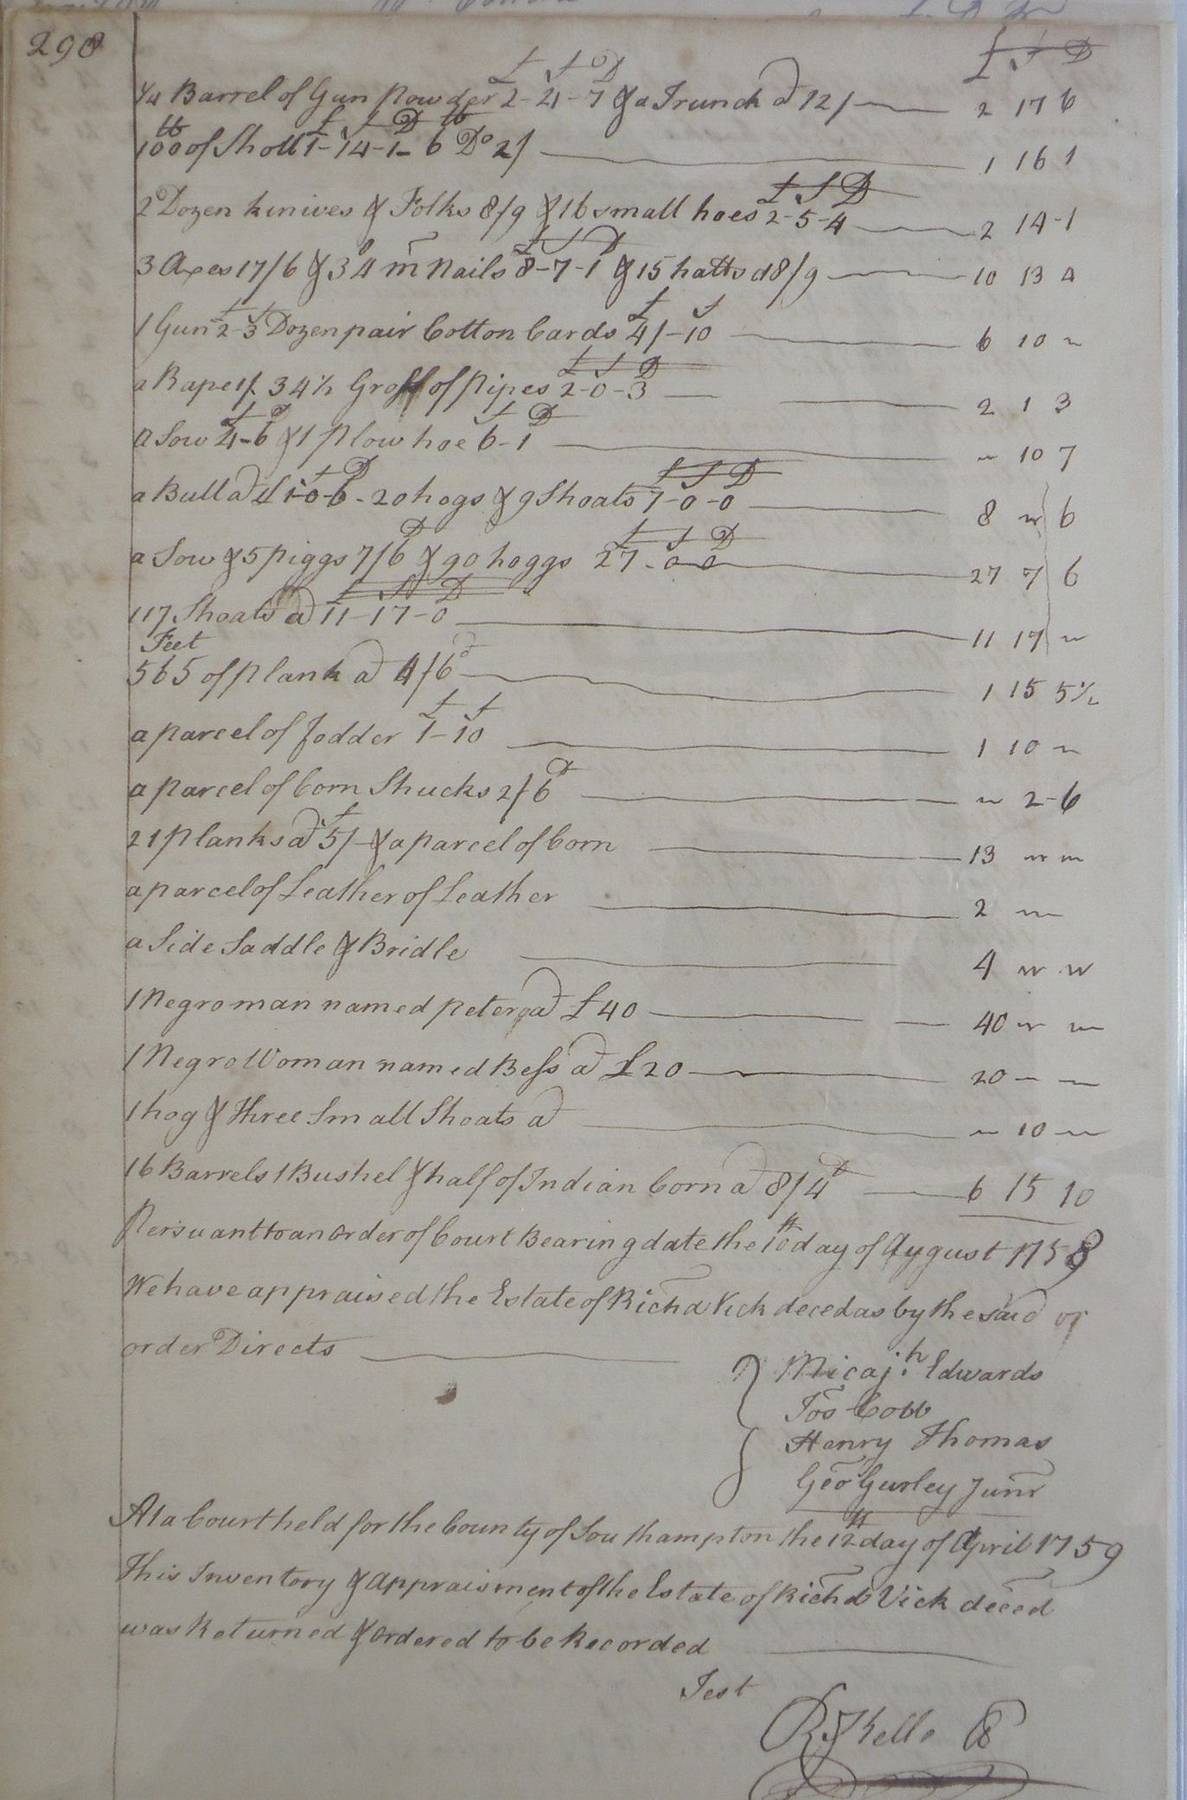 298
£ S D
¼ Barrel of Gun Powder £2-4-7 & a Trunck a 12/ 2 17 6
100 lb of Shott £1-14-1 6 lb Do 2/ 1 16 1
2 Dozen knives & Folks 8/9 & 16 small hoes £2-5-4 2 14-1
3 Axes 17/6 & 34 m Nails £8-7-1 & 15 hatts a 8/9 10 13 4
1 Gun £2-3 Dozen pair Cotton Cards £4/-10 6 10 "
a Rape 1/. 34½ Gross of Pipes £2-0-3 2 1 3
a Sow 4-6 & 1 Plow hoe 6-1 " 10 7
a Bull a £1-0-6 - 20 hogs & 9 Shoats £7-0-0 8 " 6
a Sow & 5 piggs 7/6 & 90 hoggs £27-0-0 27 7 6
117 Shoats a £11-17-0 11 17 "
565 Feet of plank a 4/6 1 15 5½
a parcel of fodder £1-10 1 10 "
a parcel of Corn Shucks 2/6 " 2-6
21 Planks a 5/- & a parcel of Corn 13 " "
a parcel of Leather of Leather 2 "
a Side Saddle & Bridle 4 " "
1 Negro man named peter a £40 40 " "
1 Negro Woman named Bess a £20 20 - -
1 hog & three Small Shoats a " 10 "
16 Barrels 1 Bushel & half of Indian Corn a 8/4 6 15 10
Persuant to an order of Court Bearing date the 10th day of August 1758
We have appraised the Estate of Richd Vick deced as by the said or
order Directs
Micaj.h Edwards
Jos Cobb
Henry Thomas
Geo Gurley Junr
At a Court held for the County of Southampton the 12th day of April 1759
This Inventory & appraisment of the Estate of Richd Vick deced
was Returned & ordered to be Recorded
Test
R Kello